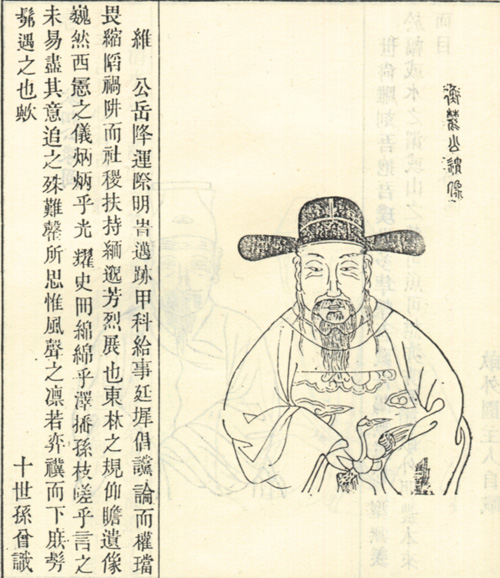 維 公岳降運際明旹邁跡甲科給事廷墀倡讜論而權璫
畏縮陷禍阱而社稷扶持緬邈芳烈展也東林之規仰瞻遺像
巍然西之儀炳炳乎光耀史冊綿綿乎澤播孫枝嗟乎言之
未易盡其意追之殊難罄所思惟風聲之凛若弈禩而下庶髣
髴遇之也歟
十世孫曾識